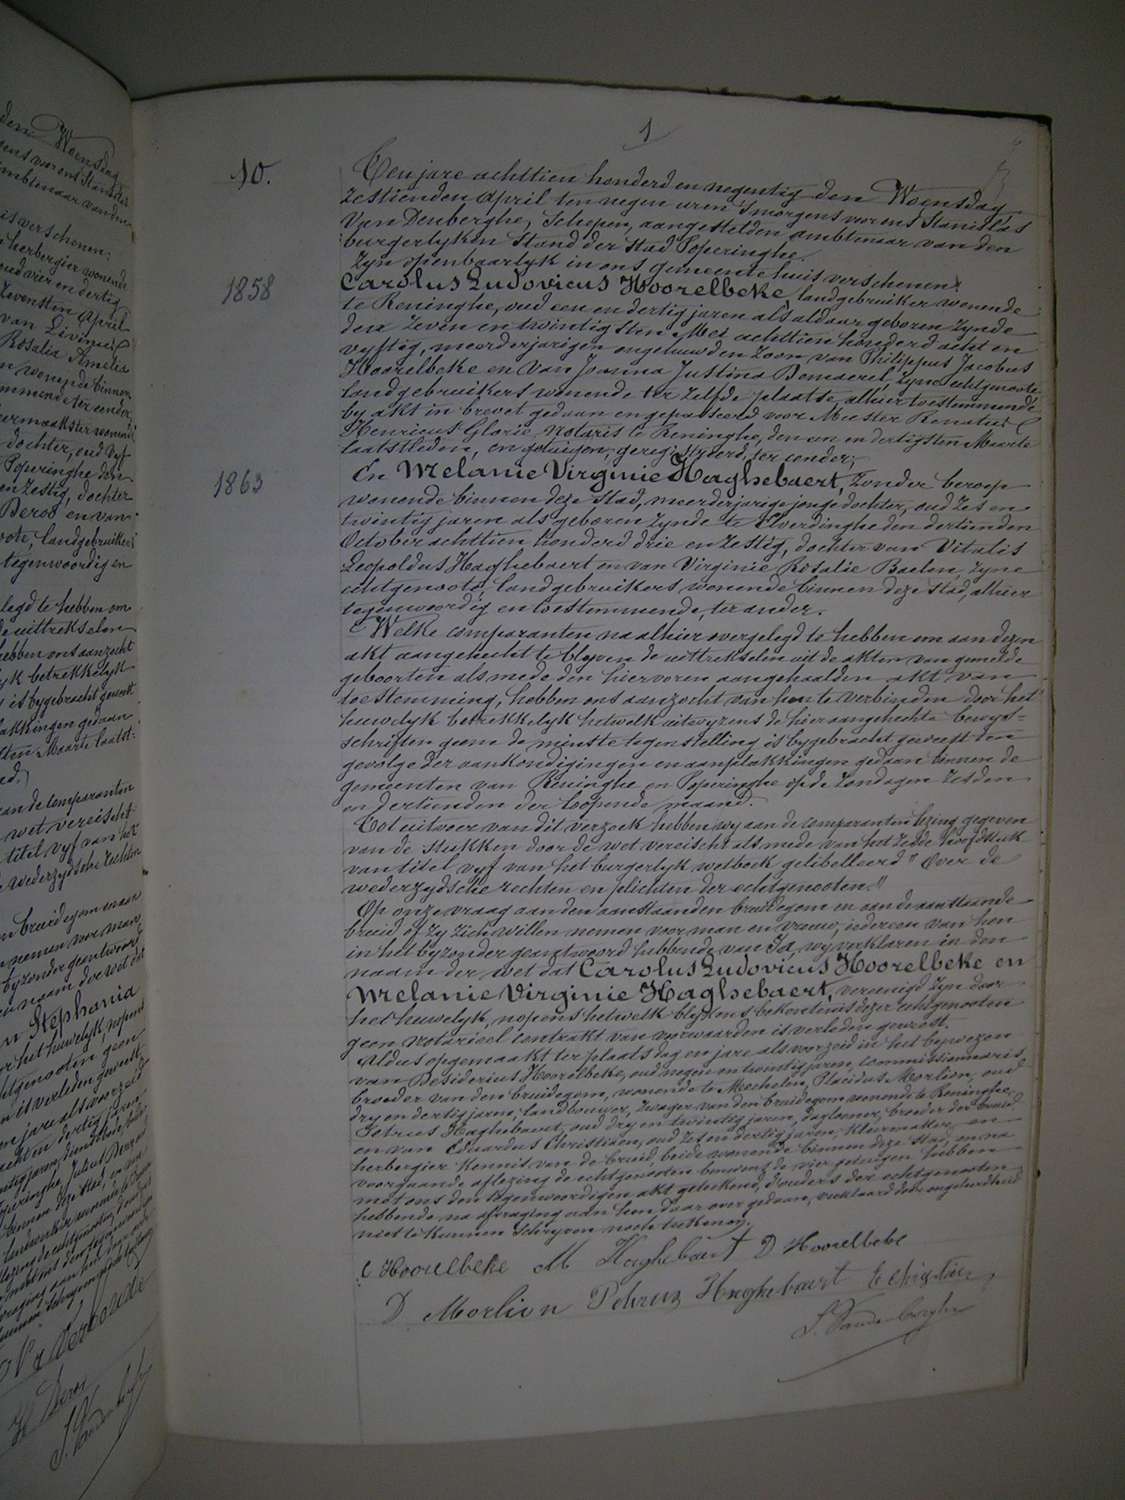 den Woensdag
is verschenen:
herbergier wonende
zevensten April
van Livinus
Rosalia Amelia
dochter, oud vyf
Poperinghe den
en zestig, dochter
Beros en van
landgebruikers
tegenwoordig en
legd te hebben om
de uittrekselen
hebben ons aanzocht
yk betrekkelyk
is bygebracht geweest
akkingen gedaan
Maarte laatst-
aan de comparanten
wet vereischt
titel vyf van het
wederzydsche rechten
bruidegom en aan
nemen voor man
byzonder geantwoord
naam der wet dat
Stephania
het huwelyk, nopens
1
10.
Ten jare achttien honderd en negentig den Woensdag
zestienden April ten negen uren 's morgens voor ons Stanislas
Van Denberghe, Schepen, aangestelden ambtenaar van den
burgerlyken Stand der stad Poperinghe.
Zyn openbaarlyk in ons gemeentehuis verschenen:
1858
Carolus Ludovicus Hoorelbeke, landgebruiker wonende
te Reninghe, oud een en dertig jaren als aldaar geboren zynde
den zeven en twintigsten Mei achttien honderd acht en
vyftig, meerderjarigen ongetrouwden zoon van Philippus Jacobus
Hoorelbeke en van Joanna Justina Bomaerel, zyne echtgenoote
landgebruikers wonende ter zelfde plaatse, alhier toestemmende
by akt in brevet gedaan en gepasseerd voor Meester Renatus
Henricus Glorie, notaris te Reninghe, den een en dertigsten Maarte
laatstleden, en getuigen, geregistreerd, ter eender;
1863
En Melanie Virginie Haghebaert, zonder beroep
wonende binnen deze stad, meerderjarige jonge dochter, oud zes en
twintig jaren als geboren zynde te Elverdinghe den dertienden
October achttien honderd drie en zestig, dochter van Vitalis
Leopoldus Haghebaert en van Virginie Rosalie Baelen, zyne
echtgenoote, landgebruikers wonende binnen deze stad, alhier
tegenwoordig en toestemmende, ter ander.
Welke comparanten na alhier overgelegd te hebben om aan dezen
akt aangehecht te blyven de uittrekselen uit de akten van gemelde
geboorten alsmede den hiervoren aangehaalden akt van
toestemming, hebben ons aanzocht van hen te verbinden door het
huwelyk betrekkelyk hetwelk uitwyzens de hieraangehechte bewys-
schriften geene de minste tegenstelling is bygebracht geweest ten
gevolge der aankondigingen en aanplakkingen gedaan binnen de
gemeenten van Reninghe en Poperinghe op de Zondagen zesden
en dertienden der loopende maand.
Tot uitvoer van dit verzoek hebben wy aan de comparanten lezing gegeven
van de stukken door de wet vereischt als mede van het zesde hoofdstuk
van titel vyf van het burgerlyk wetboek gelibelleerd "over de
wederzydsche rechten en plichten der echtgenooten."
Op onze vraag aan den aanstaanden bruidegom en aan de aanstaande
bruid of zy zich willen nemen voor man en vrouw, iedereen van hen
in het byzonder geantwoord hebbende van Ja, wy verklaren in den
naam der wet dat Carolus Ludovicus Hoorelbeke en
Melanie Virginie Haghebaert, vereenigd zyn door
het huwelyk, nopens hetwelk blykens bekentenis dezer echtgenooten
geen notarieel contrakt van voorwaarden is verleden geweest.
Aldus opgemaakt ter plaats dag en jare als voorzeid in het bywezen
van Desiderius Hoorelbeke, oud negen en twintig jaren, commissionnaris
broeder van den bruidegom, wonende te Mechelen, Placidus Morlion, oud
dry en dertig jaren, landbouwer, zwager van den bruidegom wonende te Reninghe
Petrus Haghebaert, oud dry en twintig jaren, daglooner, broeder der bruid
en van Eduardus Christiaen, oud zes en dertig jaren, kleermaker en
herbergier kennis van de bruid, beide wonende binnen deze stad, en na
voorgaande aflezing de echtgenooten benevens de vier getuigen hebben
met ons den tegenwoordigen akt geteekend, d'ouders der echtgenooten
hebbende na afvraging aan hen daar over gedaan, verklaard door ongeleerdheid
niet te kunnen schryven noch teekenen.
C Hoorelbeke M Haghebaert D Hoorelbeke
D Morlion Petrus Haghebaert E Christiaen
S. Vandenberghe